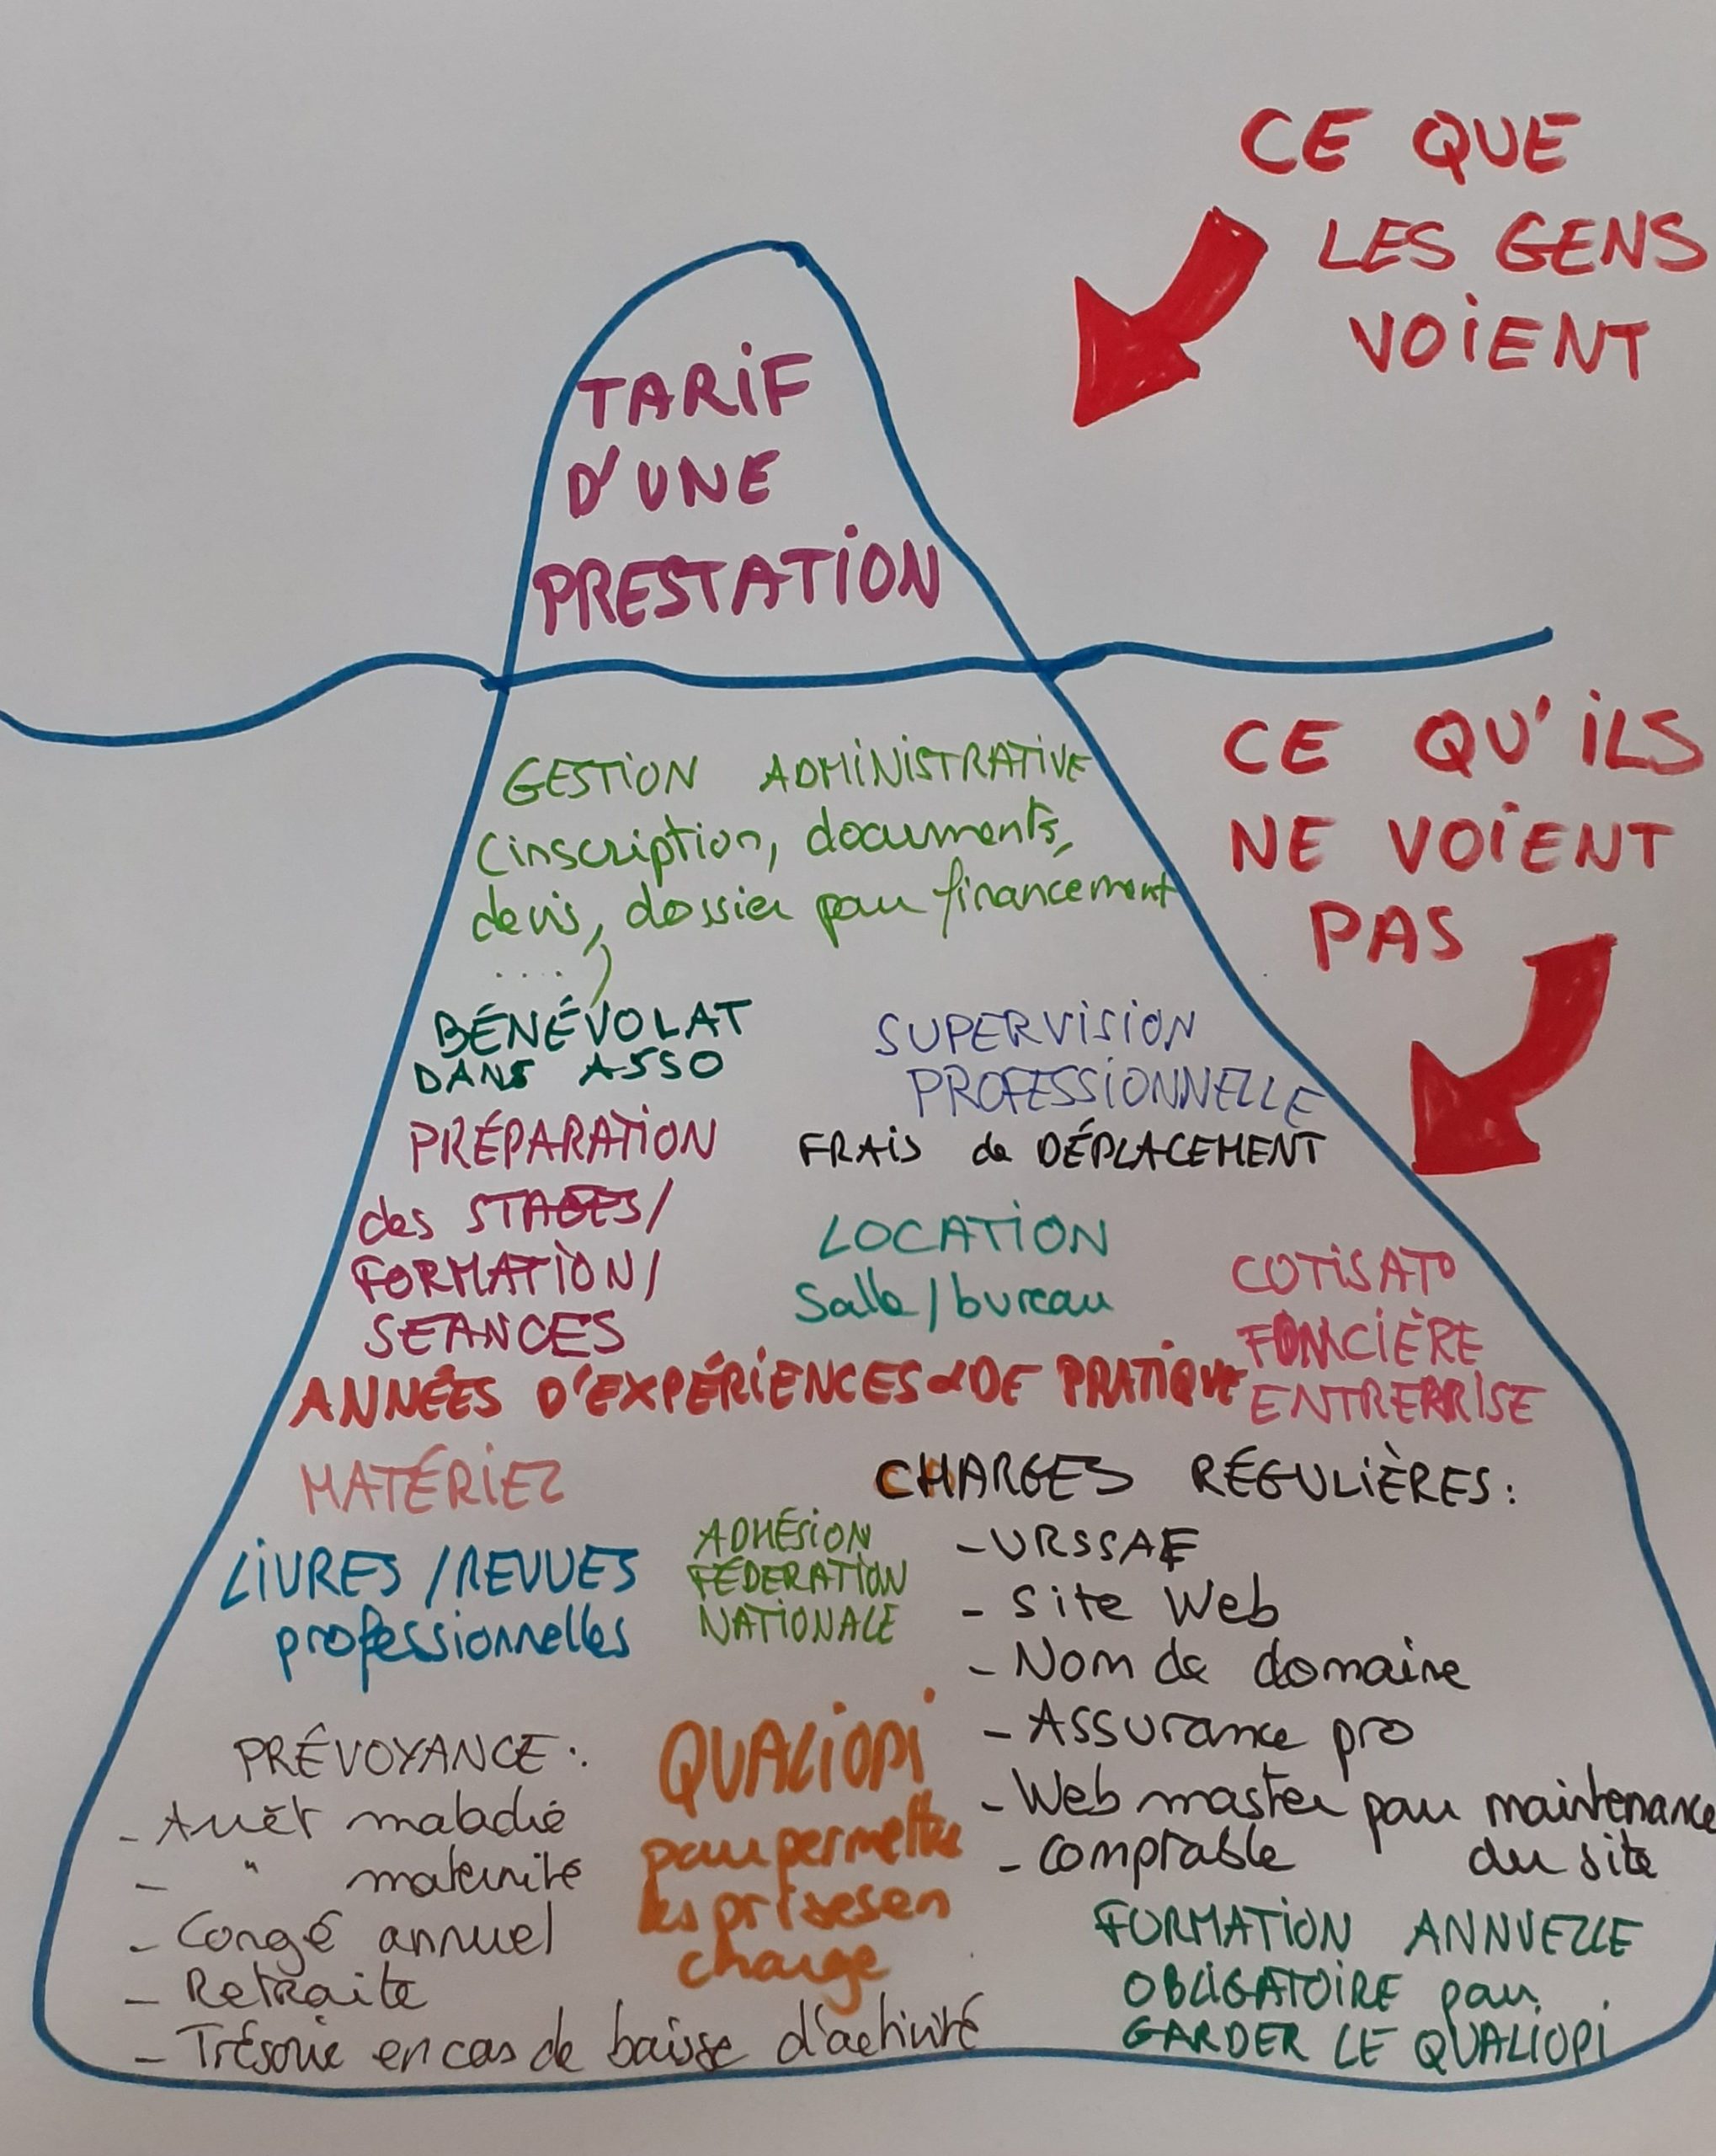 CE QUE
LES GENS
VOIENT
TARIF
D'UNE
PRESTATION
CE QU'ILS
NE VOIENT
PAS
GESTION ADMINISTRATIVE
(inscription, documents,
devis, dossier pour financement
....)
BÉNÉVOLAT
DANS ASSO
SUPERVISION
PROFESSIONNELLE
PRÉPARATION
des STAGES/
FORMATION/
SEANCES
FRAIS de DÉPLACEMENT
LOCATION
Salle/bureau
COTISATO
FONCIÈRE
ENTREPRISE
ANNÉES D'EXPÉRIENCES & DE PRATIQUE
MATÉRIEL
LIVRES / REVUES
professionnelles
ADHÉSION
FÉDERATION
NATIONALE
CHARGES RÉGULIÈRES :
- URSSAF
- Site Web
- Nom de domaine
- Assurance pro
- Web master pour maintenance
du site
- comptable
PRÉVOYANCE :
- Arrêt maladie
- " maternité
- Congé annuel
- Retraite
- Trésorie en cas de baisse d'activité
QUALIOPI
pour permettre
les prises en
charge
FORMATION ANNUELLE
OBLIGATOIRE pour
GARDER LE QUALIOPI